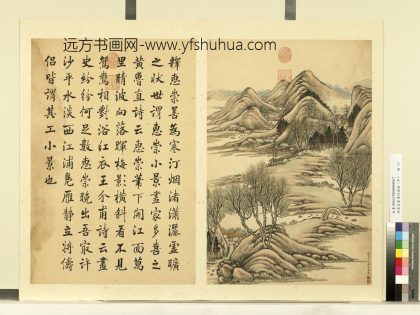 远方书画网-www.yfshuhua.com
釋惠崇善為寒汀烟渚瀟灑虛曠
之狀世謂惠崇小景畫家多喜之
黃魯直詩云惠崇筆下開江面萬
里晴波向落暉梅影橫斜看不見
鴛鴦相對浴紅衣王介甫詩云畫
史紛紛何足數惠崇晚出吾最許
沙平水淡西江浦鳧雁靜立將儔
侶皆謂其工小景也